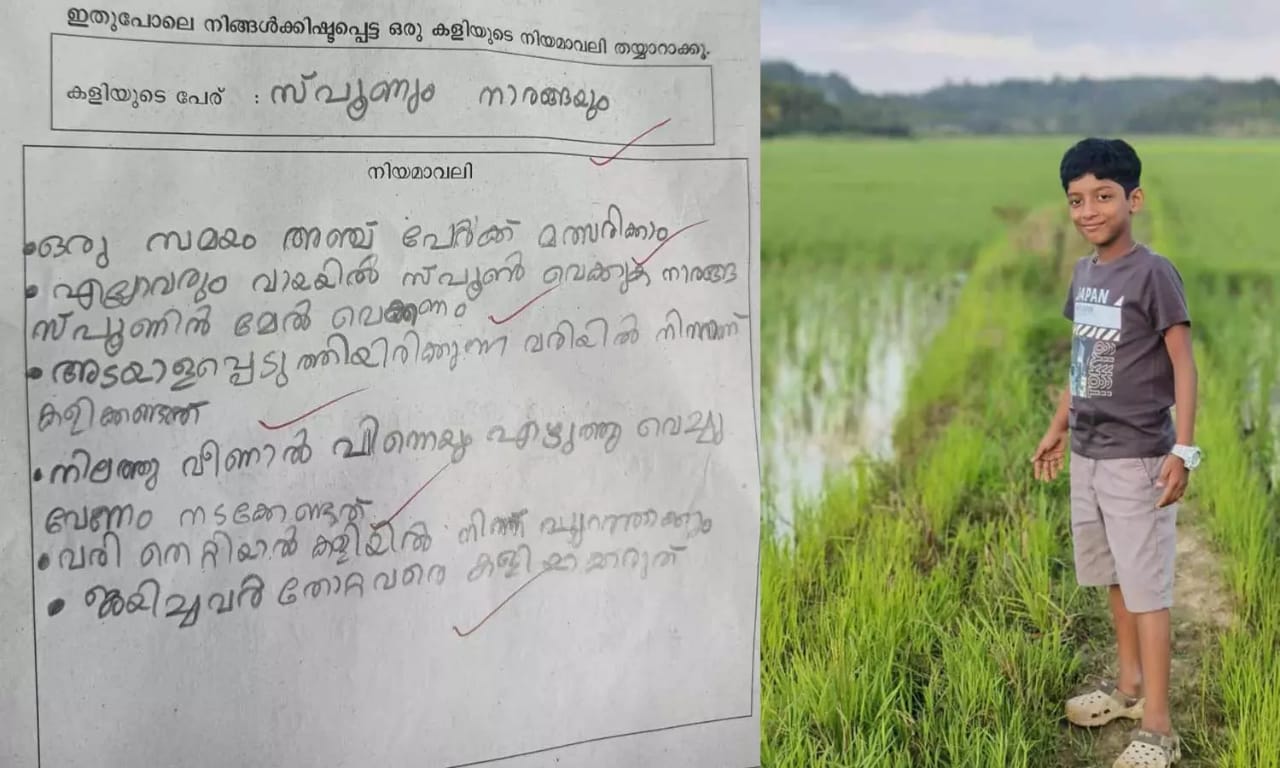 ഇതുപോലെ നിങ്ങൾക്കിഷ്ടപ്പെട്ട ഒരു കളിയുടെ നിയമാവലി തയ്യാറാക്കൂ.
കളിയുടെ പേര് : സ്പൂണും നാരങ്ങയും
നിയമാവലി
• ഒരു സമയം അഞ്ച് പേർക്ക് മത്സരിക്കാം
• എല്ലാവരും വായയിൽ സ്പൂൺ വെക്കുക നാരങ്ങ
സ്പൂണിൻ മേൽ വെക്കണം
• അടയാളപ്പെടുത്തിയിരിക്കുന്ന വരിയിൽ നിന്നാണ്
കളിക്കണ്ടത്
• നിലത്തു വീണാൽ പിന്നെയും എടുത്തു വെച്ചു
വേണം നടക്കേണ്ടത്
• വരി തെറ്റിയാൽ കളിയിൽ നിന്ന് പുറത്താക്കും
• ജയിച്ചവർ തോറ്റവരെ കളിയാക്കരുത്
JAPAN